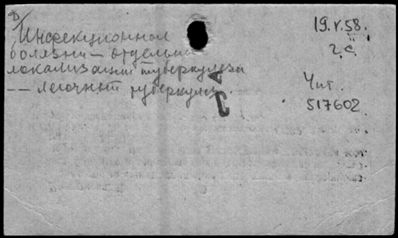 Инфекционная
болезни — отдельные
локализации туберкулеза
-- легочный туберкулез.
19.V.58.
г.с.
Чит.
517602